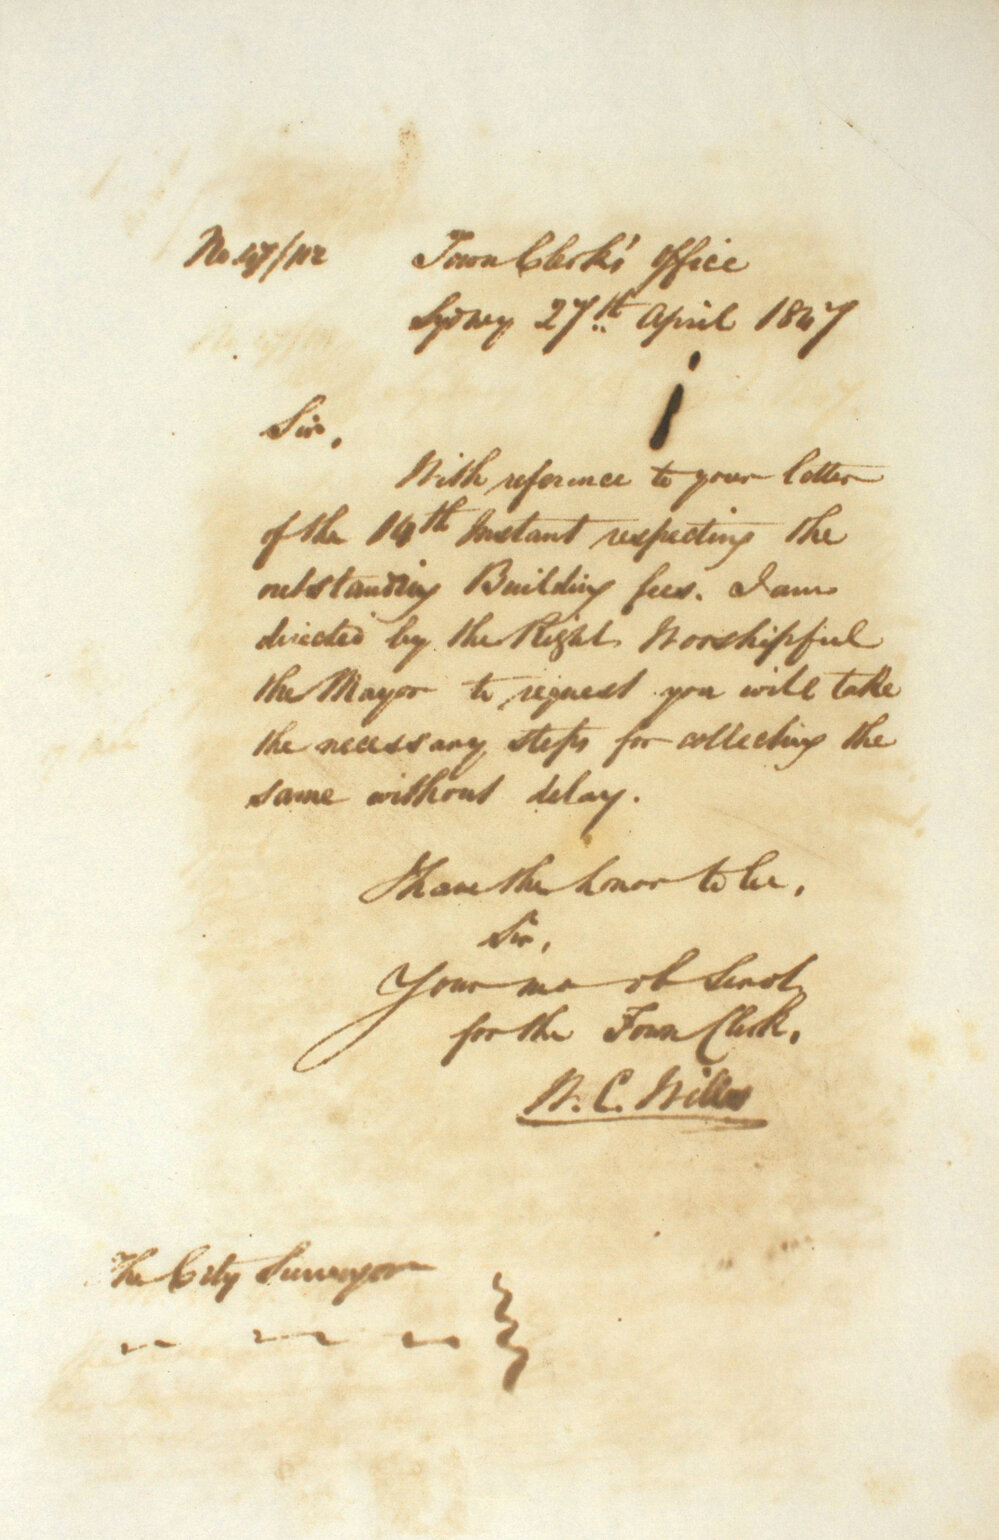 No 47/112
Town Clerk's Office
Sydney 27th April 1847
Sir,
With reference to your letter
of the 14th Instant respecting the
outstanding Building fees. I am
directed by the Right Worshipful
the Mayor to request you will take
the necessary steps for collecting the
same without delay.
I have the honor to be,
Sir,
Your mo ob Servt
for the Town Clerk,
W. C. Wills
The City Surveyor